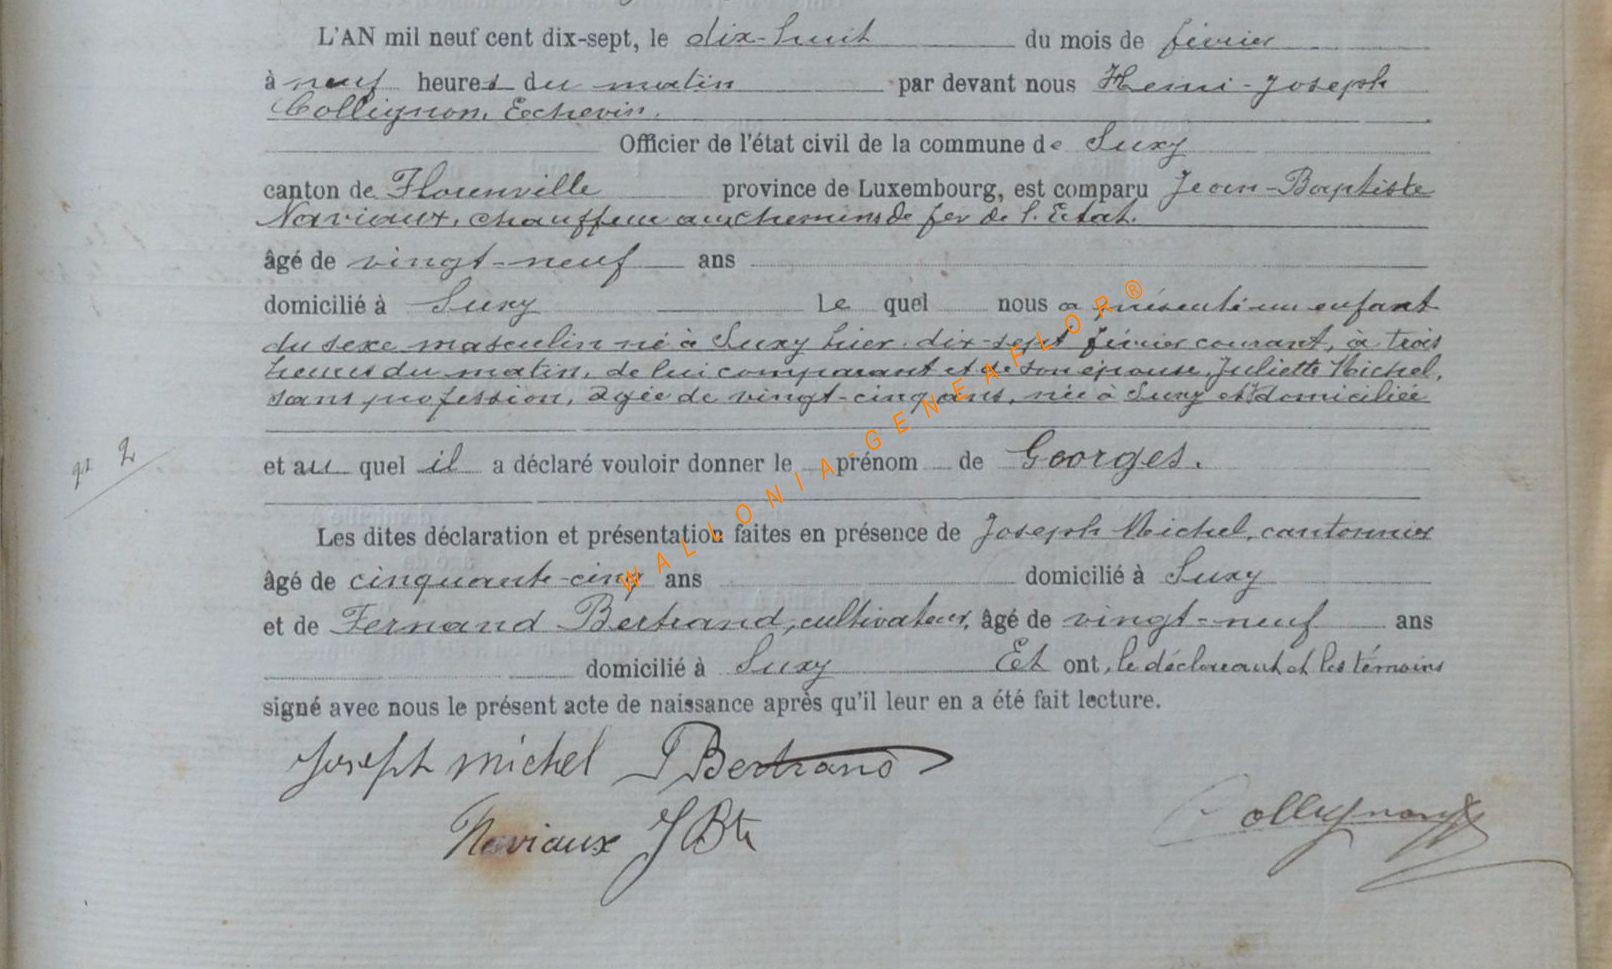 L'AN mil neuf cent dix-sept, le dix-huit du mois de février
à neuf heures du matin par devant nous Henri-Joseph
Collignon, Echevin.
Officier de l'état civil de la commune de Suxy
canton de Florenville province de Luxembourg, est comparu Jean-Baptiste
Naviaux, chauffeur aux chemins de fer de l'Etat.
âgé de vingt-neuf ans
domicilié à Suxy Le quel nous a présenté un enfant
du sexe masculin né à Suxy hier, dix-sept février courant, à trois
heures du matin, de lui comparant et de son épouse, Juliette Michel,
sans profession, âgée de vingt-cinq ans, née à Suxy et domiciliée
et au quel il a déclaré vouloir donner le prénom de Georges.
n° 2
Les dites déclaration et présentation faites en présence de Joseph Michel, cantonnier
âgé de cinquante-cinq ans domicilié à Suxy
et de Fernand Bertrand, cultivateur, âgé de vingt-neuf ans
domicilié à Suxy Et ont, le déclarant et les témoins
signé avec nous le présent acte de naissance après qu'il leur en a été fait lecture.
Joseph Michel F Bertrand
Naviaux J Bte
Collignon
WALLONIA-GENEAFLOR®